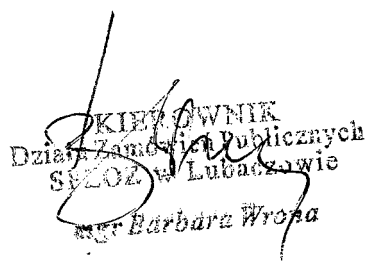 KIEROWNIK
Działu Zamówień Publicznych
SPZOZ w Lubaczowie
mgr Barbara Wrona